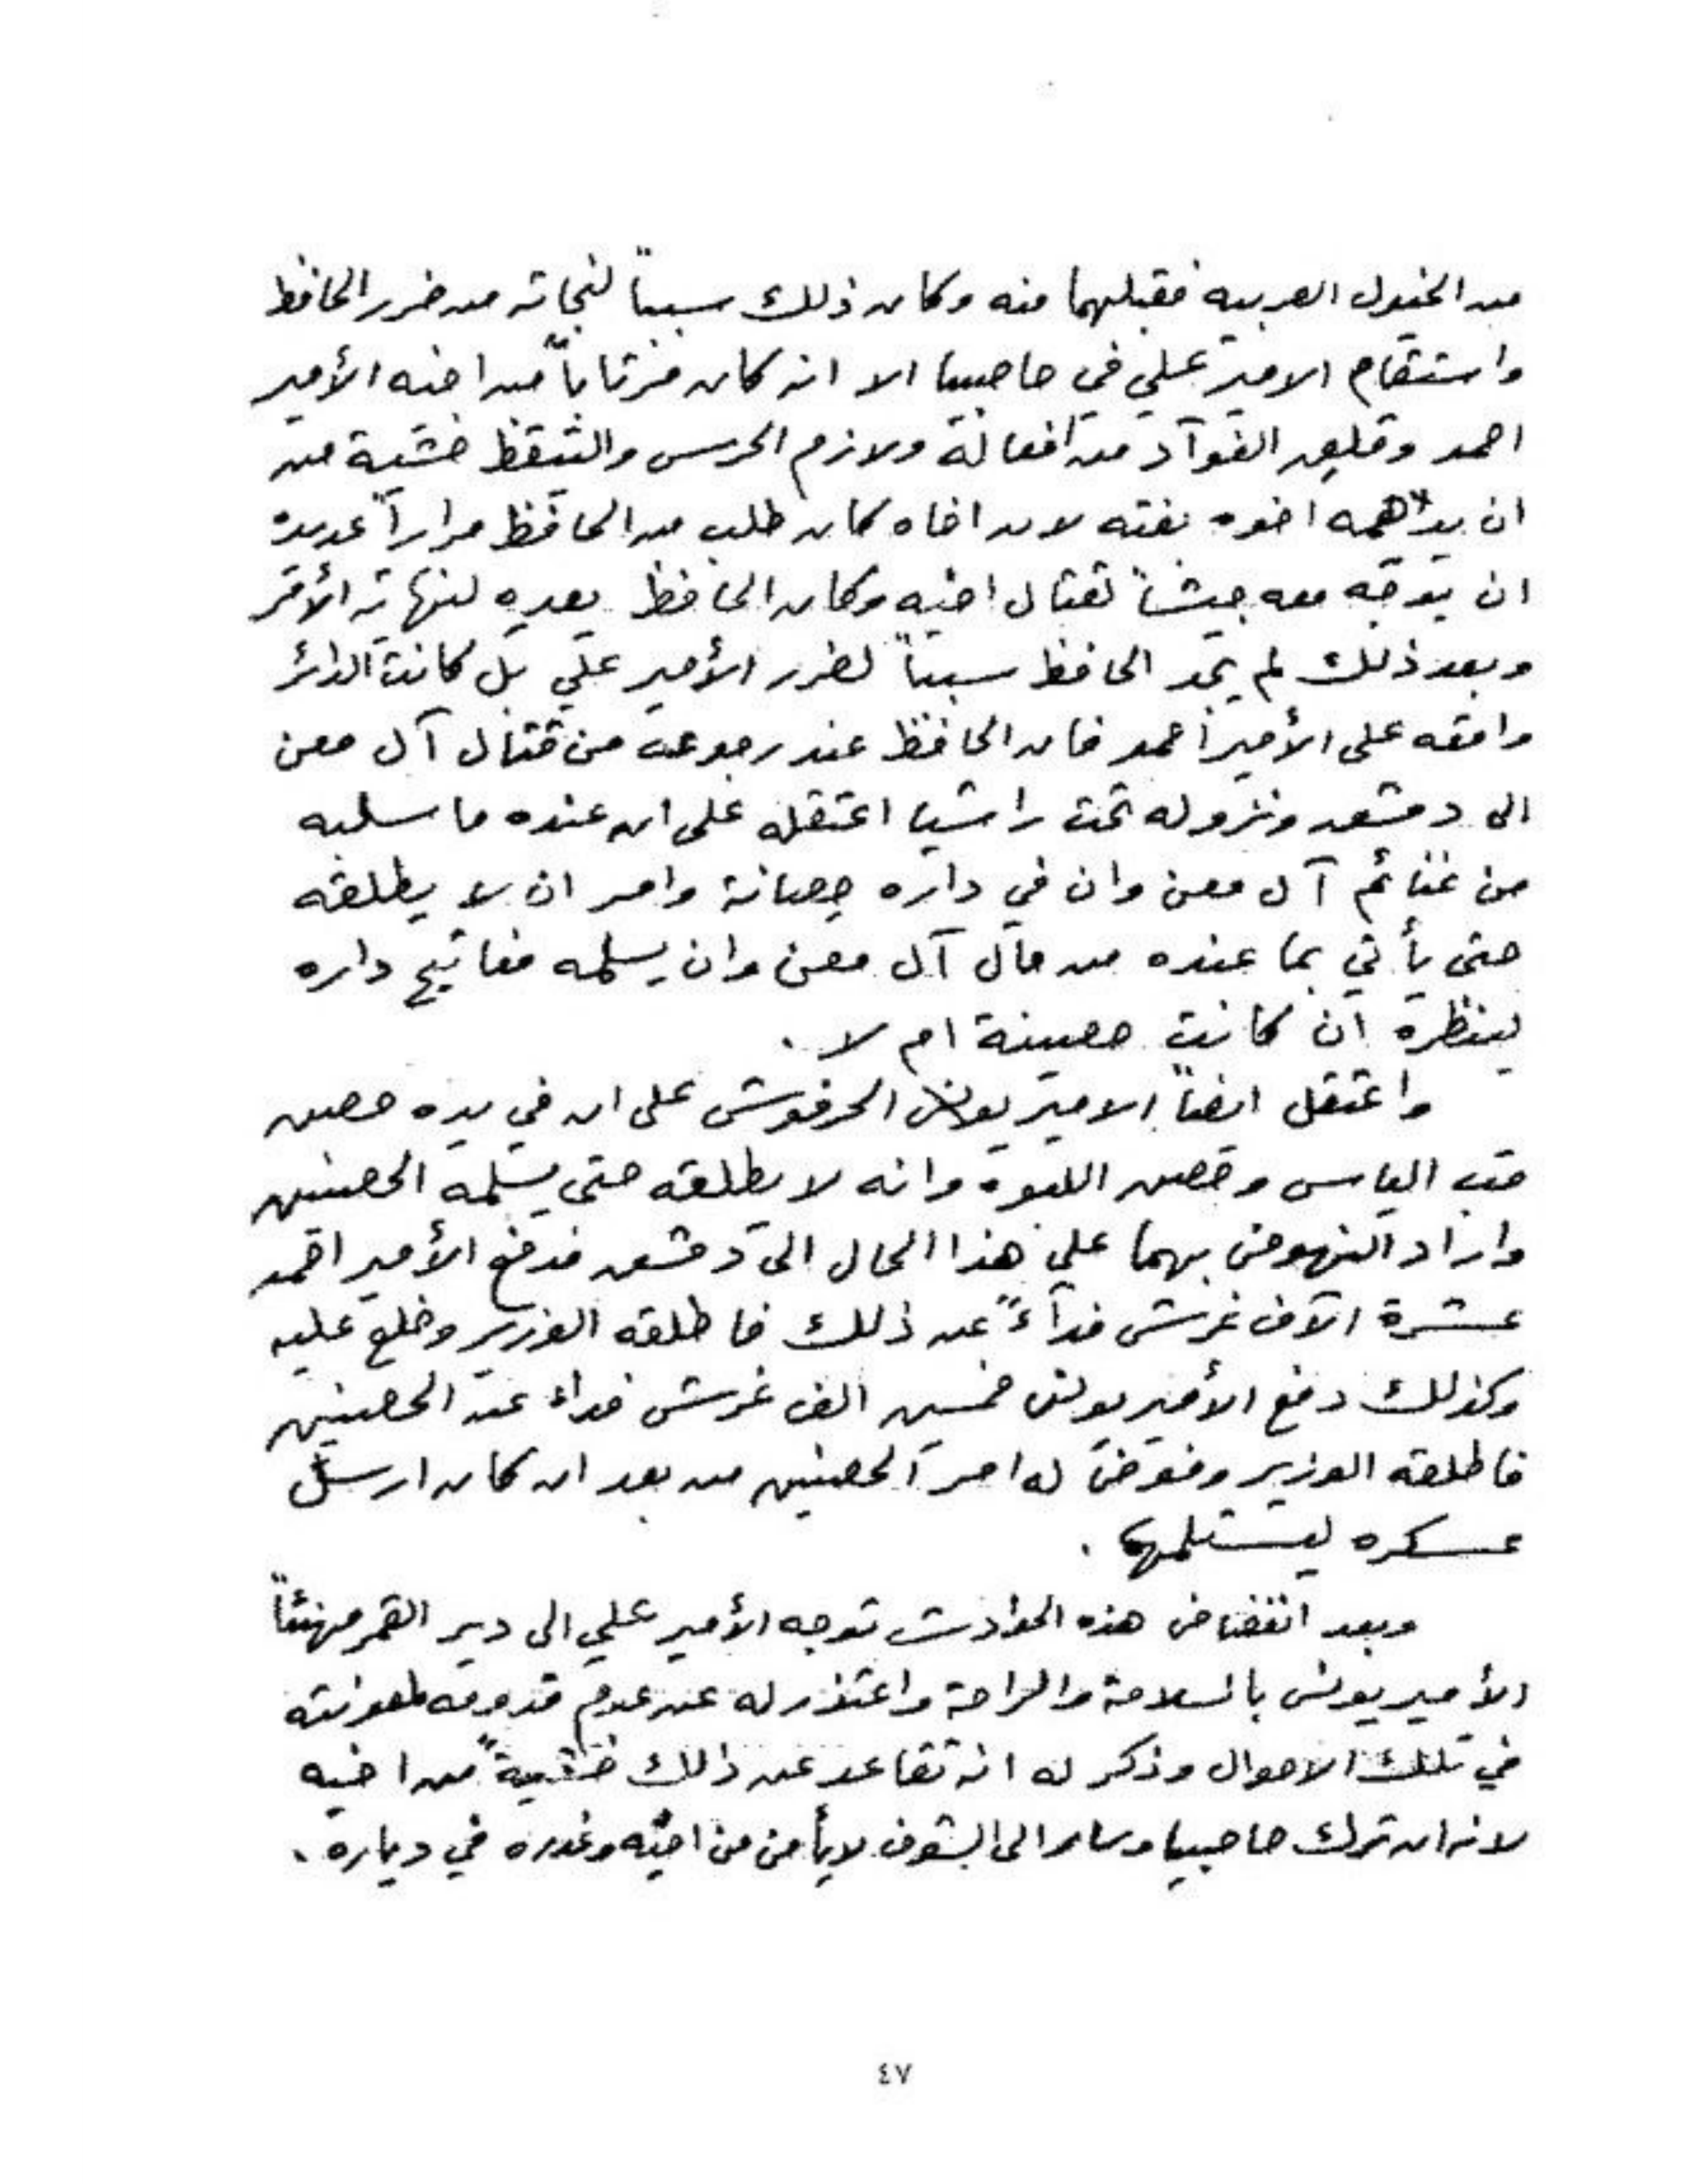 من الخيول العربيه فقبلهما منه وكان ذلك سبباً لنجاته من ضرر الحافظ
واستقام الامير علي في حاصبيا الا انه كان مرتاباً من اخيه الأمير
احمد وقلق الفوآد من افعاله ولازم الحرس والتيقظ خشية من
ان يداهمه اخوه بغته لان اخاه كان طلب من الحافظ مراراً عديده
ان يوجه معه جيشاً لقتال اخيه وكان الحافظ يعده لنهاية الأمر
وبعد ذلك لم يجد الحافظ سبباً لضرر الأمير علي بل كانت الدائر
واقعه على الأمير أحمد فان الحافظ عند رجوعه من قتال آل معن
الى دمشق ونزوله تحت راشيا اعتقله على ان عنده ما سلبه
من غنائم آل معن وان في داره حصانة وامر ان لا يطلقه
حتى يأتي بما عنده من مال آل معن وان يسلمه مفاتيح داره
لينظره ان كانت حصينة ام لا .
واعتقل ايضاً الامير يونس الحرفوش على ان في يده حصن
قب الياس وحصن اللبوه وانه لا يطلقه حتى يسلمه الحصنين
واراد النهوض بهما على هذا الحال الى دمشق فدفع الأمير احمد
عشرة آلاف غرش فدآءً عن ذلك فاطلقه الوزير وخلع عليه
وكذلك دفع الأمير يونس خمسين الف غرش فداء عن الحصنين
فاطلقه الوزير وفوض له امر الحصنين من بعد ان كان ارسل
عسكره ليستلمها .
وبعد انقضاض هذه الحوادث توجه الأمير علي الى دير القمر مهنئاً
الأمير يونس بالسلامة والراحة واعتذر له عن عدم قدومه لمعونته
في تلك الاحوال وذكر له انه تقاعد عن ذلك خشيةً من اخيه
لانه ان ترك حاصبيا وسار الى الشوف لا يأمن من اخيه وغدره في دياره .
٤٧